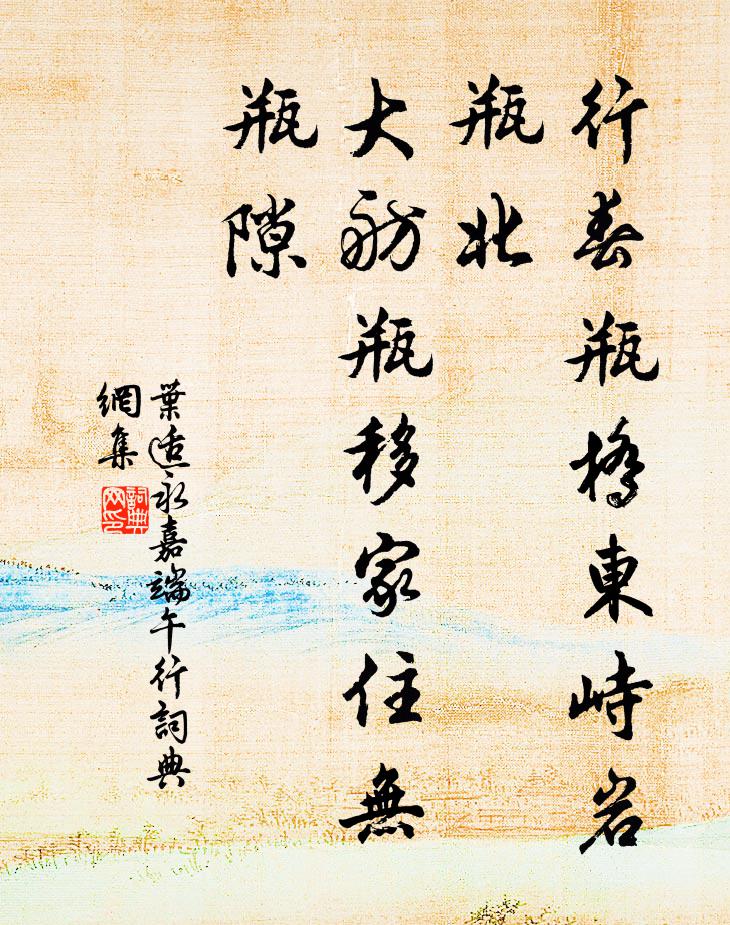 行春瓶橋東峙岩
瓶北
大舫瓶移家住無
瓶隙
葉適永嘉端午行詞典
網集
詞典
网印